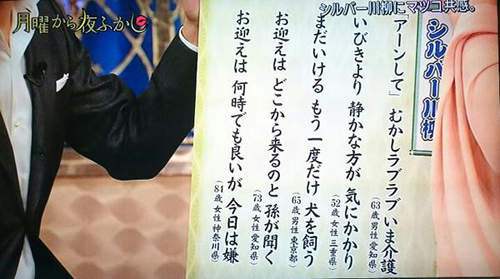 シルバー川柳にマツコ共感。
月曜から夜ふかし
シルバー川柳
アーンして」 むかしラブラブ いま介護
(63歳 男性 愛知県)
いびきより 静かな方が 気にかかり
(52歳 女性 三重県)
まだいける もう一度だけ 犬を飼う
(65歳 男性 東京都)
お迎えは どこから来るのと 孫が聞く
(73歳 女性 愛知県)
お迎えは 何時でも良いが 今日は嫌
(84歳 女性 神奈川県)